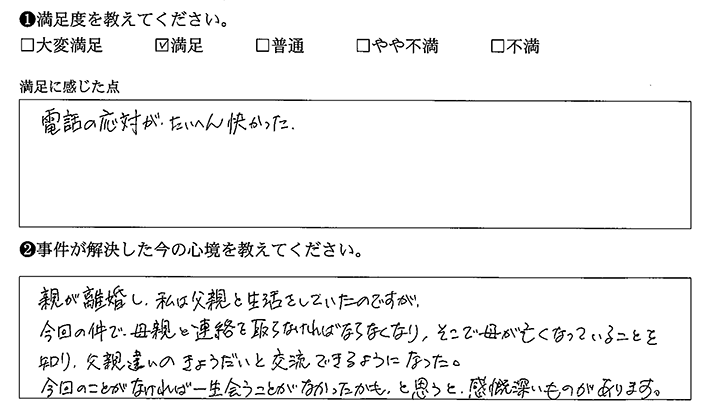 ❶満足度を教えてください。
□大変満足 ☑満足 □普通 □やや不満 □不満
満足に感じた点
電話の応対が、たいへん快かった。
❷事件が解決した今の心境を教えてください。
親が離婚し、私は父親と生活をしていたのですが、
今回の件で、母親と連絡を取らなければならなくなり、そこで母が亡くなっていることを
知り、父親違いのきょうだいと交流できるようになった。
今回のことがなければ一生会うことがなかったかも、と思うと、感慨深いものがあります。